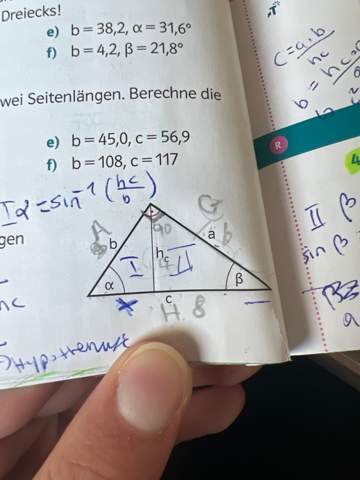 Dreiecks!
e) b = 38,2, α = 31,6°
f) b = 4,2, β = 21,8°
wei Seitenlängen. Berechne die
e) b = 45,0, c = 56,9
f) b = 108, c = 117
I α = sin⁻¹ (hc/b)
gen
A
G
90
b
a
b
I
hc
II
α
β
c
H
8
hc
Hypottenuse
c = a·b/hc
b = hc
R
4
II β
sin β
β =
a